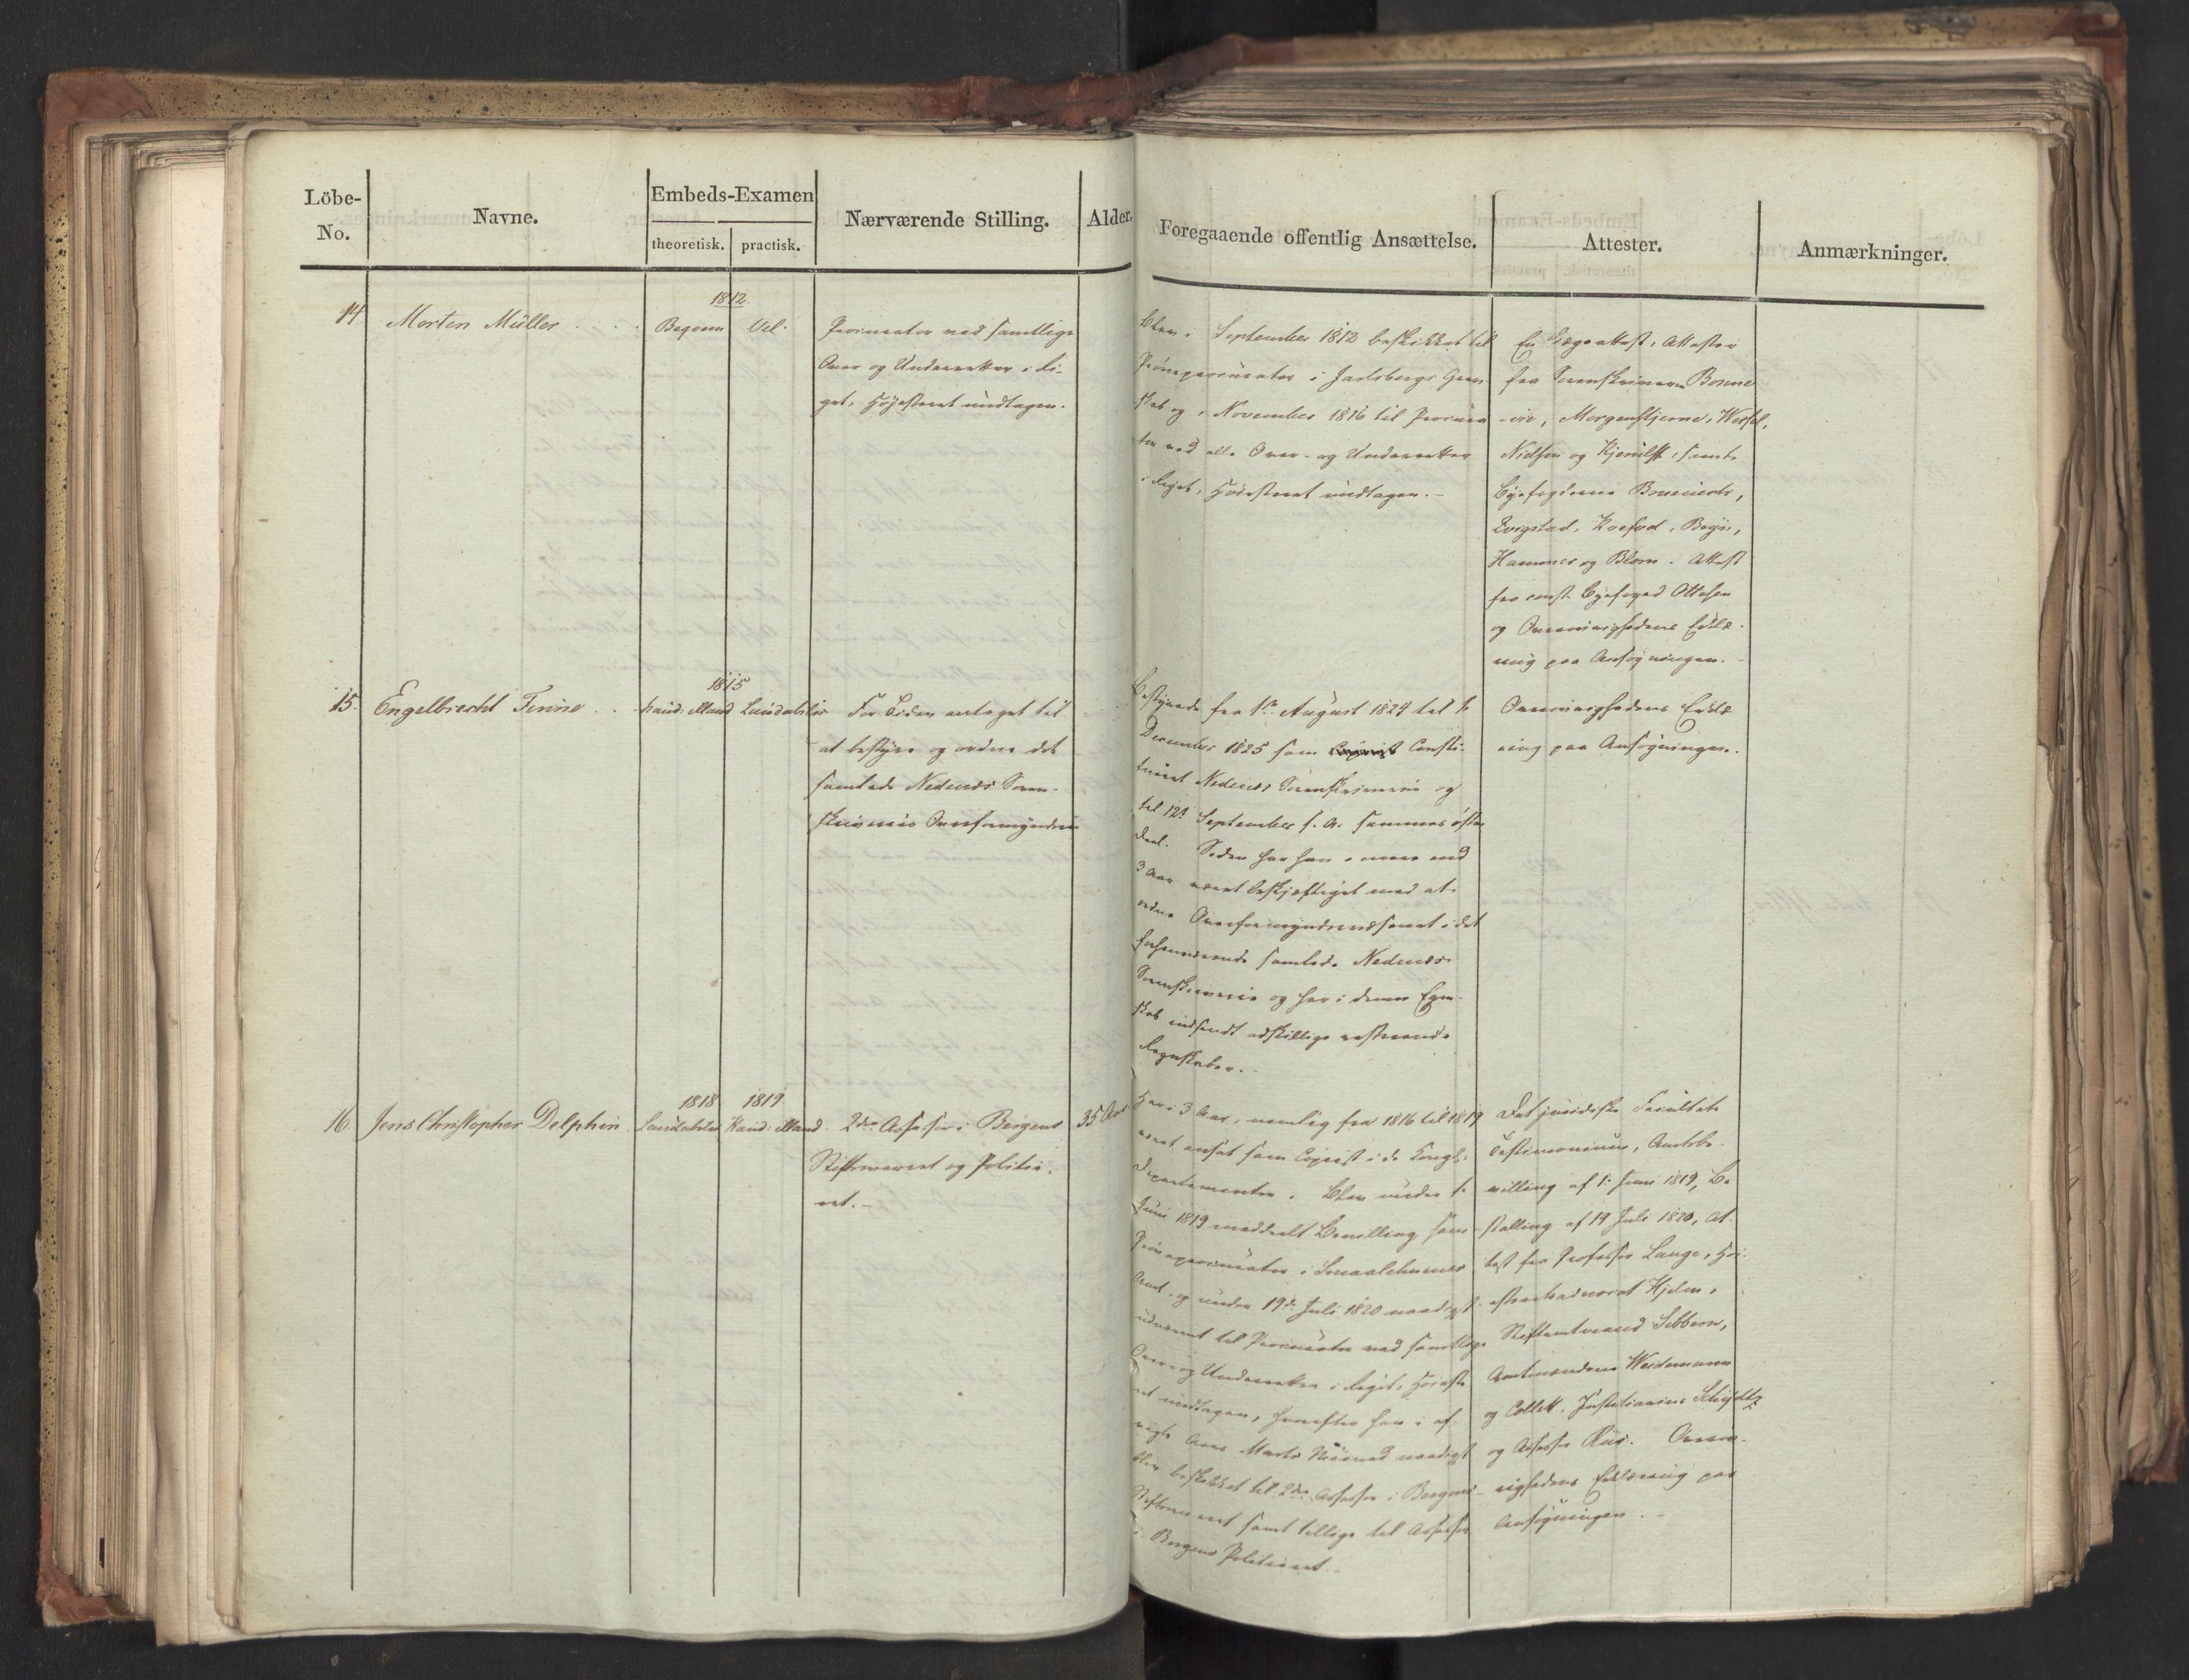 Löbe-
No.
Navne.
Embeds-Examen
theoretisk. practisk.
Nærværende Stilling.
Alder.
Foregaaende offentlig Ansættelse.
Attester.
Anmærkninger.
14 Morten Müller
1812
Beqvem Vel.
Procurator ved samtlige
Over og Underretter i Ri-
get, Høiesteret undtagen.
Blev i September 1812 beskikket til
Prøveprocurator i Jarlsbergs Grev-
skab og i November 1816 til Procura
tor ved alle Over- og Underretter
i Riget, Høiesteret undtagen. -
En Lægeattest, Attester
fra Sorenskriverne
Morgenstjerne, Wessel,
Nielsen og Hjerulff, samt
Byefogderne
Hammer og Blom. Attest
fra const. Byefoged Ottesen
og Overøvrighedens Erklæ-
ring paa Ansøgningen. -
15. Engelbrecht Finne
1815
haud: illaud Laudabilis
For Tiden antaget til
at bestyre og ordne det
samlede Nedenæs Soren-
skriveries Overformynderie
Bestyrede fra 1ste August 1824 til
December 1825 som Consti-
tueret Nedenæs Sorenskriverie og
til 12te September s. A. sammes østre
Deel. Siden har han i mere end
3 Aar været beskjæftiget med at
ordne Overformynderievæsenet i det
forhenværende samlede Nedenæs
Sorenskriverie og har i denne Egen-
skab indsendt adskillige resterende
Regnskaber.
Overøvrighedens Erklæ
ring paa Ansøgningen.
16. Jens Christopher Delphin
1818 1819
Laudabilis Haud: illaud
2den Assessor i Bergens
Stiftsoverret og Politie-
ret. -
35 Aar
Har i 3 Aar, nemlig fra 1816 til 1819
været ansat som Copiist i de Kongl:
Departementer. Blev under 1.
Junii 1819 meddeelt Bevilling som
Prøveprocurator i Smaalehnenes
Amt, og under 19de Juli 1820 naadigst
udnævnt til Procurator ved samtlige
Over- og Underretter i Riget, Høieste
ret undtagen, hvorefter han i af-
vigte Aars Marts Maaned naadigst
blev beskikket til 2den Assessor i Bergens
Stiftsoverret samt tillige til Assessor
i Bergens Politieret. -
Det juridiske Facultets
Testimonium, Amtsbe-
villing af 1. Juni 1819, Be
stalling af 19 Juli 1820, At-
test fra Professor Lange, Høi-
esteretsadvocat Hjelm,
Stiftamtmand Sibbern,
Amtmændene Weidemann
og Collett, Justitiarius
og Assessor Riis. Overøv-
righedens Erklæring paa
Ansøgningen. -